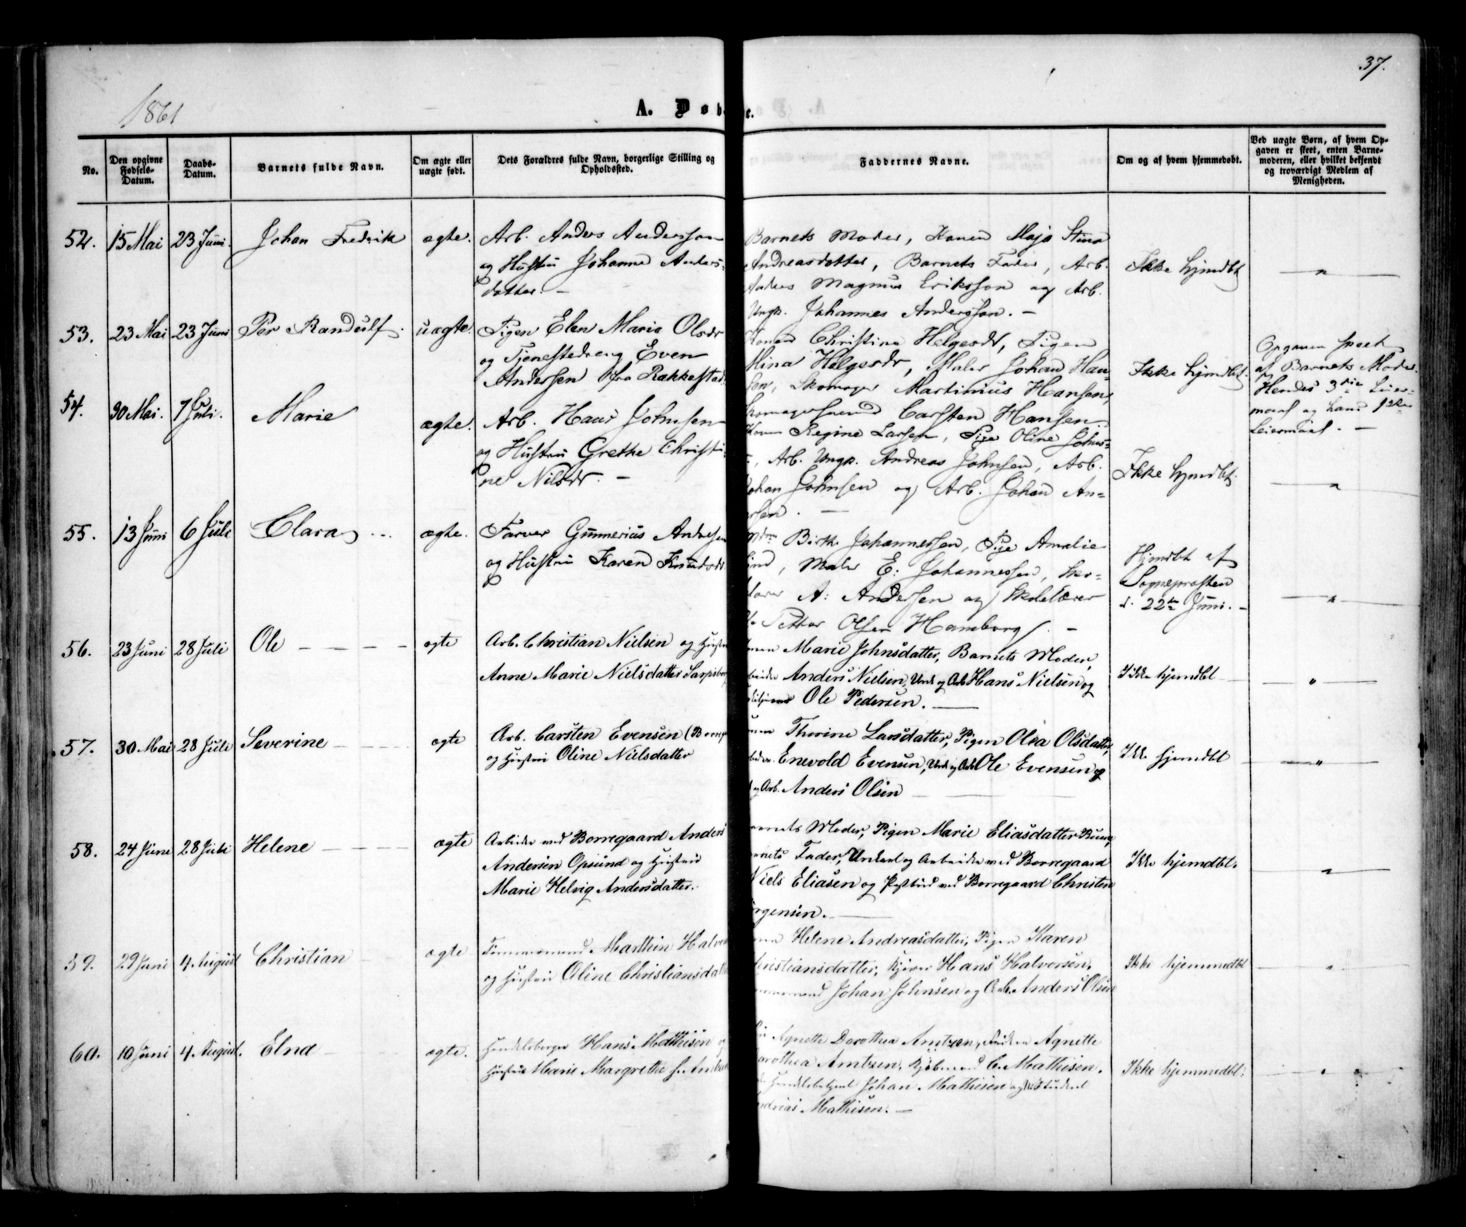 37.
1861
A. Døbte.
No.
Den opgivne Fødsels-Datum.
Daabs-Datum.
Barnets fulde Navn.
Om ægte eller uægte født.
Dets Forældres fulde Navn, borgerlige Stilling og Opholdssted.
Faddernes Navne.
Om og af hvem hjemmedøbt.
Ved uægte Børn, af hvem Opgaven er skeet, enten Barnemoderen, eller hvilket bekjendt og troværdigt Medlem af Menigheden.
52. 15 Mai 23 Juni. Johan Fredrik ægte. Arb. Anders Andersson
og Hustru Johanne Anders-
datter. –
Barnets Moder, Konen Maja Stina
Andreasdotter, Barnets Fader, Arb.
Magnus Eriksson og Arb.
Ungk. Johannes Andersson. –
Ikke hjmdbt
"
53. 23 Mai 23 Juni Per Randulf. uægte. Pigen Elen Marie Olsdr
og Tjenestedreng Even
Andersen fra Rakkestad
Konen Christine Helgesdr, Pigen
Mina Helgesdr, Maler Johan Han-
sen, Skomager Martinius Hansen,
Skomagersvend Carsten Hansen.
Ikke hjmdbt.
Opgaven skeet
af Barnets Moder
Hendes 3die Leier-
maal og hans 1ste
Leiermaal. –
54. 30 Mai. 7 Juli. Marie ægte. Arb. Hans Johnsen
og Hustru Grethe Christi-
ne Nilsdr. –
Konen Regine Larsen, Pige Oline Johns-
Arb. Ungk. Andreas Johnsen, Arb.
Johan Johnsen og Arb. Johan An-
Ikke hjmdbt.
"
55. 13 Juni 6 Juli Clara ægte. Farver Gunnerius Andresen
og Hustru Karen Knudsdr
Birth. Johannessen, Pige Amalie
Maler E. Johannessen, Sko-
A: Andersen og Skolelærer
Petter Olsen Hamborg. –
Hjmdbt af
Sogneprosten
d. 22de Juni. –
"
56. 23 Juni 28 Juli Ole – – – – ægte Arb. Christian Nielsen og Hustru
Anne Marie Nielsdatter Sarpsborg
Konen Marie Johnsdatter, Barnets Moder,
Arbeider Anders Nielsen, Unk og Arb Hans Nielsen og
Ole Pedersen. –
Ikke hjemdbt
"
57. 30 Mai 28 Juli Severine – – – ægte Arb. Carsten Evensen (Borre
og Hustru Oline Nielsdatter
Konen Therine Larsdatter, Pigen Olea Olsdatter,
Arbeider Enevold Evensen, Unk og Arb Ole Evensen og
og Arb. Anders Olsen –
Ikke hjemdbt
"
58. 24 Juni 28 Juli Helene – – – – ægte Arbeider ved Borregaard Anders
Andersen Opsund og Hustru
Marie Helvig Andersdatter.
Barnets Moder, Pigen Marie Eliasdatter
Barnets Fader, Unkarl og Arbeider ved Borregaard
Niels Eliasen og Postbud ved Borregaard Christen
Jørgensen. –
Ikke hjemdbt.
"
59. 29 Juni 4. August Christian – – ægte Tømmermand Marthin Halvor
og Hustru Oline Christiansdat
Konen Helene Andreasdatter, Pigen Karen
Christiansdatter, Kjører Hans Halversen,
Tømmermand Johan Johnsen og Arb. Anders Olsen
Ikke hjemmedbt
"
60. 10 Juni 4. August. Elna – ægte. Handelsborger Hans Mathisen
Hustru Marie Margrethe f. Amts
Agnette Dorothea Amtzen, Agnette
Dorothea Amtzen, Kjøbmand C. Mathisen.
Handelsbetjent Johan Mathisen og Student
Andreas Mathisen. –
Ikke hjemmedbt.
"